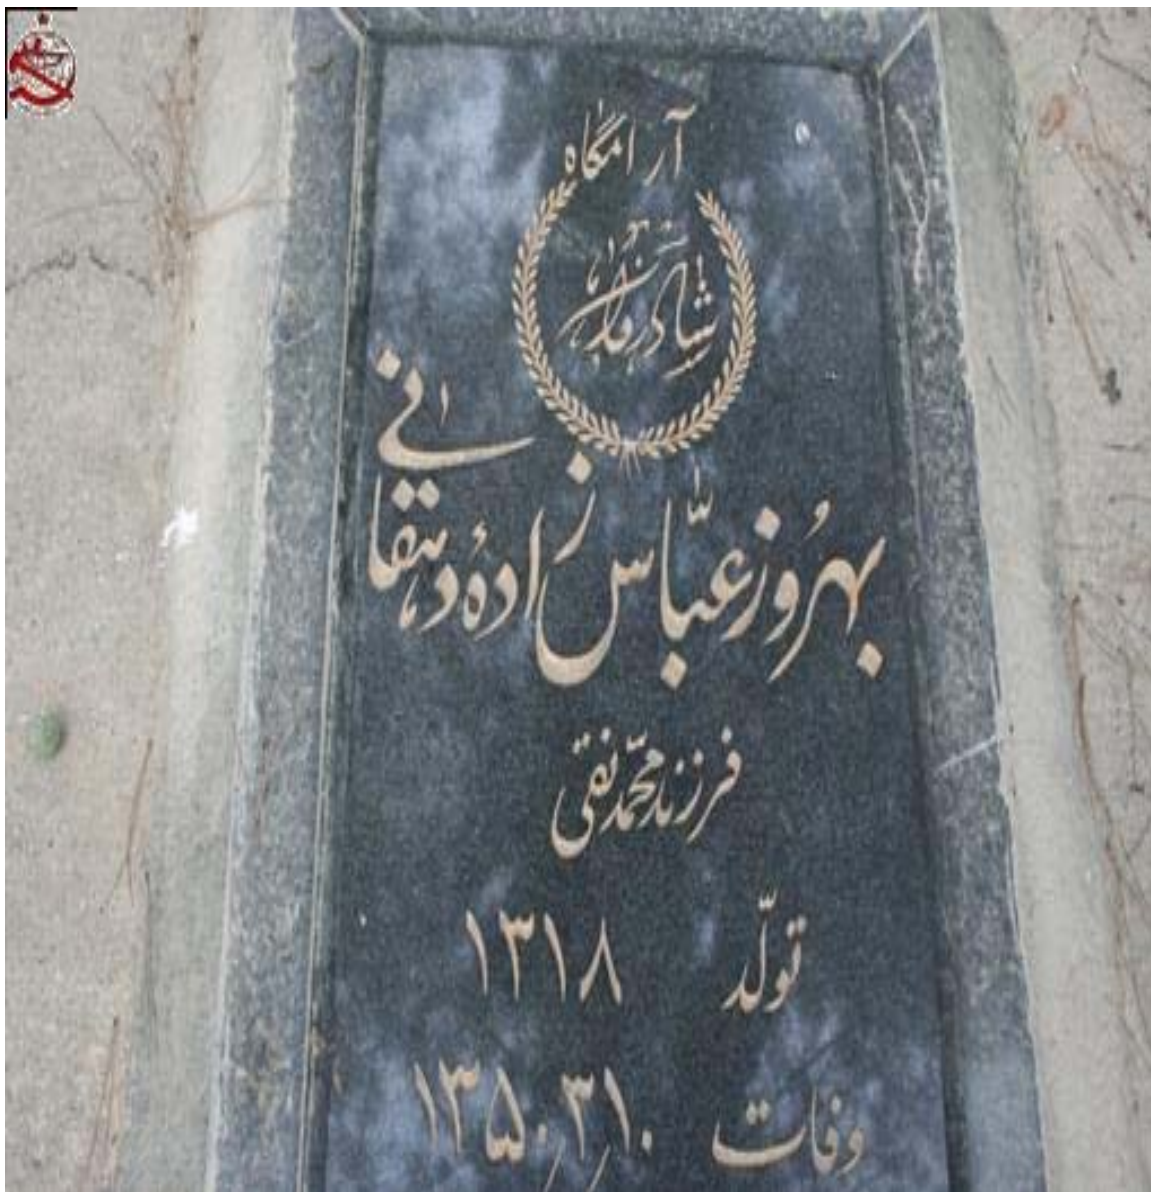 آرامگاه
شادروان
بهرُوز عبّاس زادهٔ دهقانی
فرزند محمّد نقی
تولّد ۱۳۱۸
وفات ۱۳۵۰٫۳٫۱۰